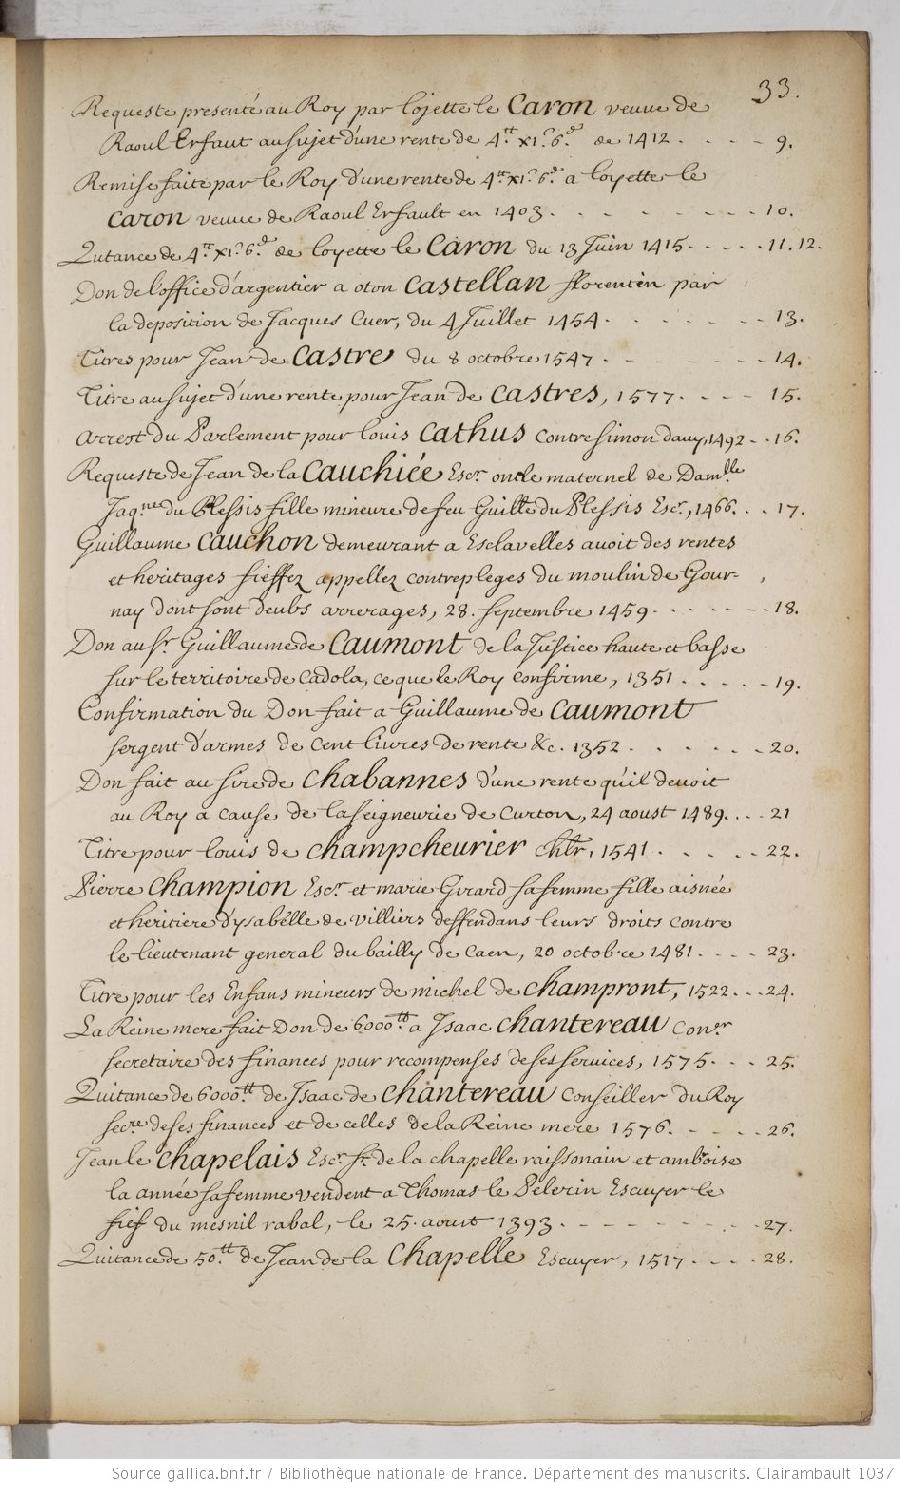 33.
Requeste presenté au Roy par Cojette le Caron veuve de
Raoul Erfaut au sujet d'une rente de 4.tt xi.s 6.d de 1412. . . . . 9.
Remise faite par le Roy d'une rente de 4.tt xi.s 6.d a Coyette le
Caron veuve de Raoul Erfault en 1403. . . . . . . . 10.
Quitance de 4.tt xi.s 6.d de Coyette le Caron du 13 Juin 1415. . . . . 11. 12.
Don de l'office d'argentier a oton Castellan florentin par
la deposition de Jacques Cuer, du 4 Juillet 1454. . . . . . 13.
Titres pour Jean de Castres du 8 octobre 1547. . . . . 14.
Titre au sujet d'une rente pour Jean de Castres, 1577. . . . . 15.
Arrest du Parlement pour Louis Cathus contre Simon davy, 1492. . . 16.
Requeste de Jean de la Cauchiée Escr. oncle maternel de Dam.lle
Jaq.ne du Plessis fille mineure de feu Guill.e du Plessis Escr., 1466. . . 17.
Guillaume Cauchon demeurant a Esclavelles avoit des rentes
et heritages fieffez appellez contrepleges du moulin de Gour-
nay dont sont deubs arrerages, 28. Septembre 1459. . . . . . 18.
Don au Sr. Guillaume de Caumont de la Justice haute et basse
sur le territoire de Cadola, ce que le Roy confirme, 1351. . . . . . 19.
Confirmation du Don fait a Guillaume de Caumont
sergent d'armes de cent livres de rente &c. 1352. . . . . . 20.
Don fait au sire de Chabannes d'une rente qu'il devoit
au Roy a cause de la seigneurie de Curton, 24 aoust 1489. . . . 21
Titre pour Louis de Champcheurier Chlr, 1541. . . . . . 22.
Pierre Champion Escr. et marie Girard sa femme fille aisnée
et heritiere d'ysabelle de Villiers deffendans leurs droits contre
le lieutenant general du bailly de Caen, 20 octobre 1481. . . . . 23.
Titre pour les Enfans mineurs de michel de Champront, 1522. . . 24.
La Reine mere fait Don de 6000.tt a Isaac Chantereau Con.er
secretaire des finances pour recompenses de ses services, 1575. . . . 25.
Quitance de 6000.tt de Isaac de Chantereau Conseiller du Roy
secr.e de ses finances et de celles de la Reine mere 1576. . . . . 26.
Jean le Chapelais Escr. Sr. de la chapelle raissonain et amboise
la année sa femme vendent a Thomas le Pelerin Escuyer le
fief du mesnil rabal, le 25. aoust 1393. . . . . . . . 27.
Quitance de 50.tt de Jean de la Chapelle Escuyer, 1517. . . . . 28.
Source gallica.bnf.fr / Bibliothèque nationale de France. Département des manuscrits. Clairambault 1037